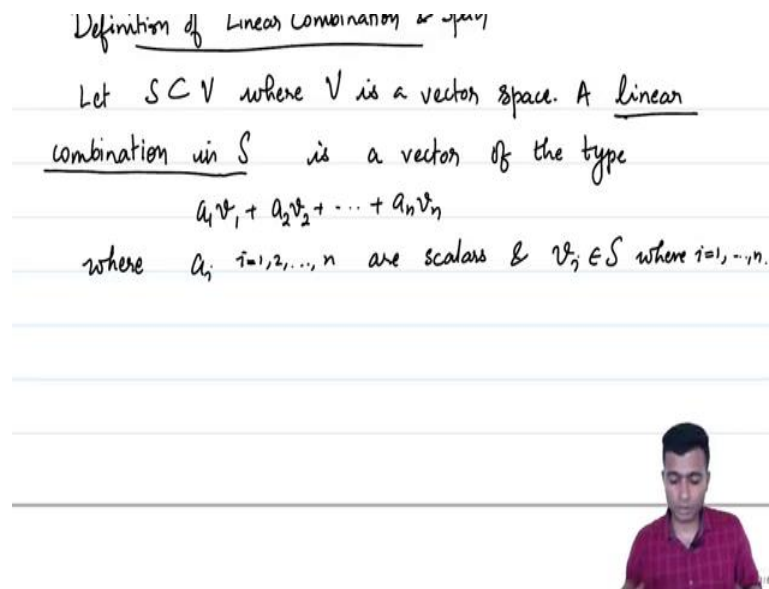 Definition of Linear Combination & span
Let S ⊂ V where V is a vector space. A linear
combination in S is a vector of the type
a₁v₁ + a₂v₂ + ... + aₙvₙ
where aᵢ i=1,2,..., n are scalars & vᵢ ∈ S where i=1, ..., n.